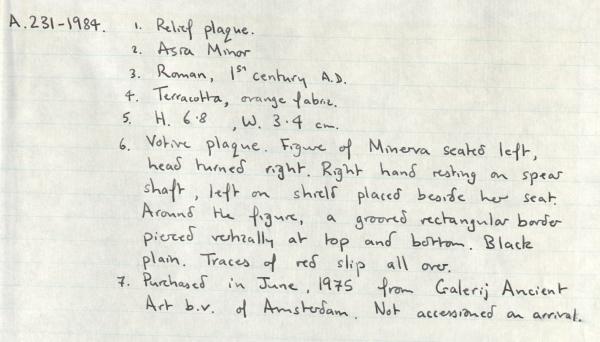 A.231-1984. 1. Relief plaque.
2. Asia Minor
3. Roman, 1st century A.D.
4. Terracotta, orange fabric.
5. H. 6.8 , W. 3.4 cm.
6. Votive plaque. Figure of Minerva seated left,
head turned right. Right hand resting on spear
shaft, left on shield placed beside her seat.
Around the figure, a grooved rectangular border
pierced vertically at top and bottom. Black
plain. Traces of red slip all over.
7. Purchased in June, 1975 from Galerij Ancient
Art b.v. of Amsterdam. Not accessioned on arrival.